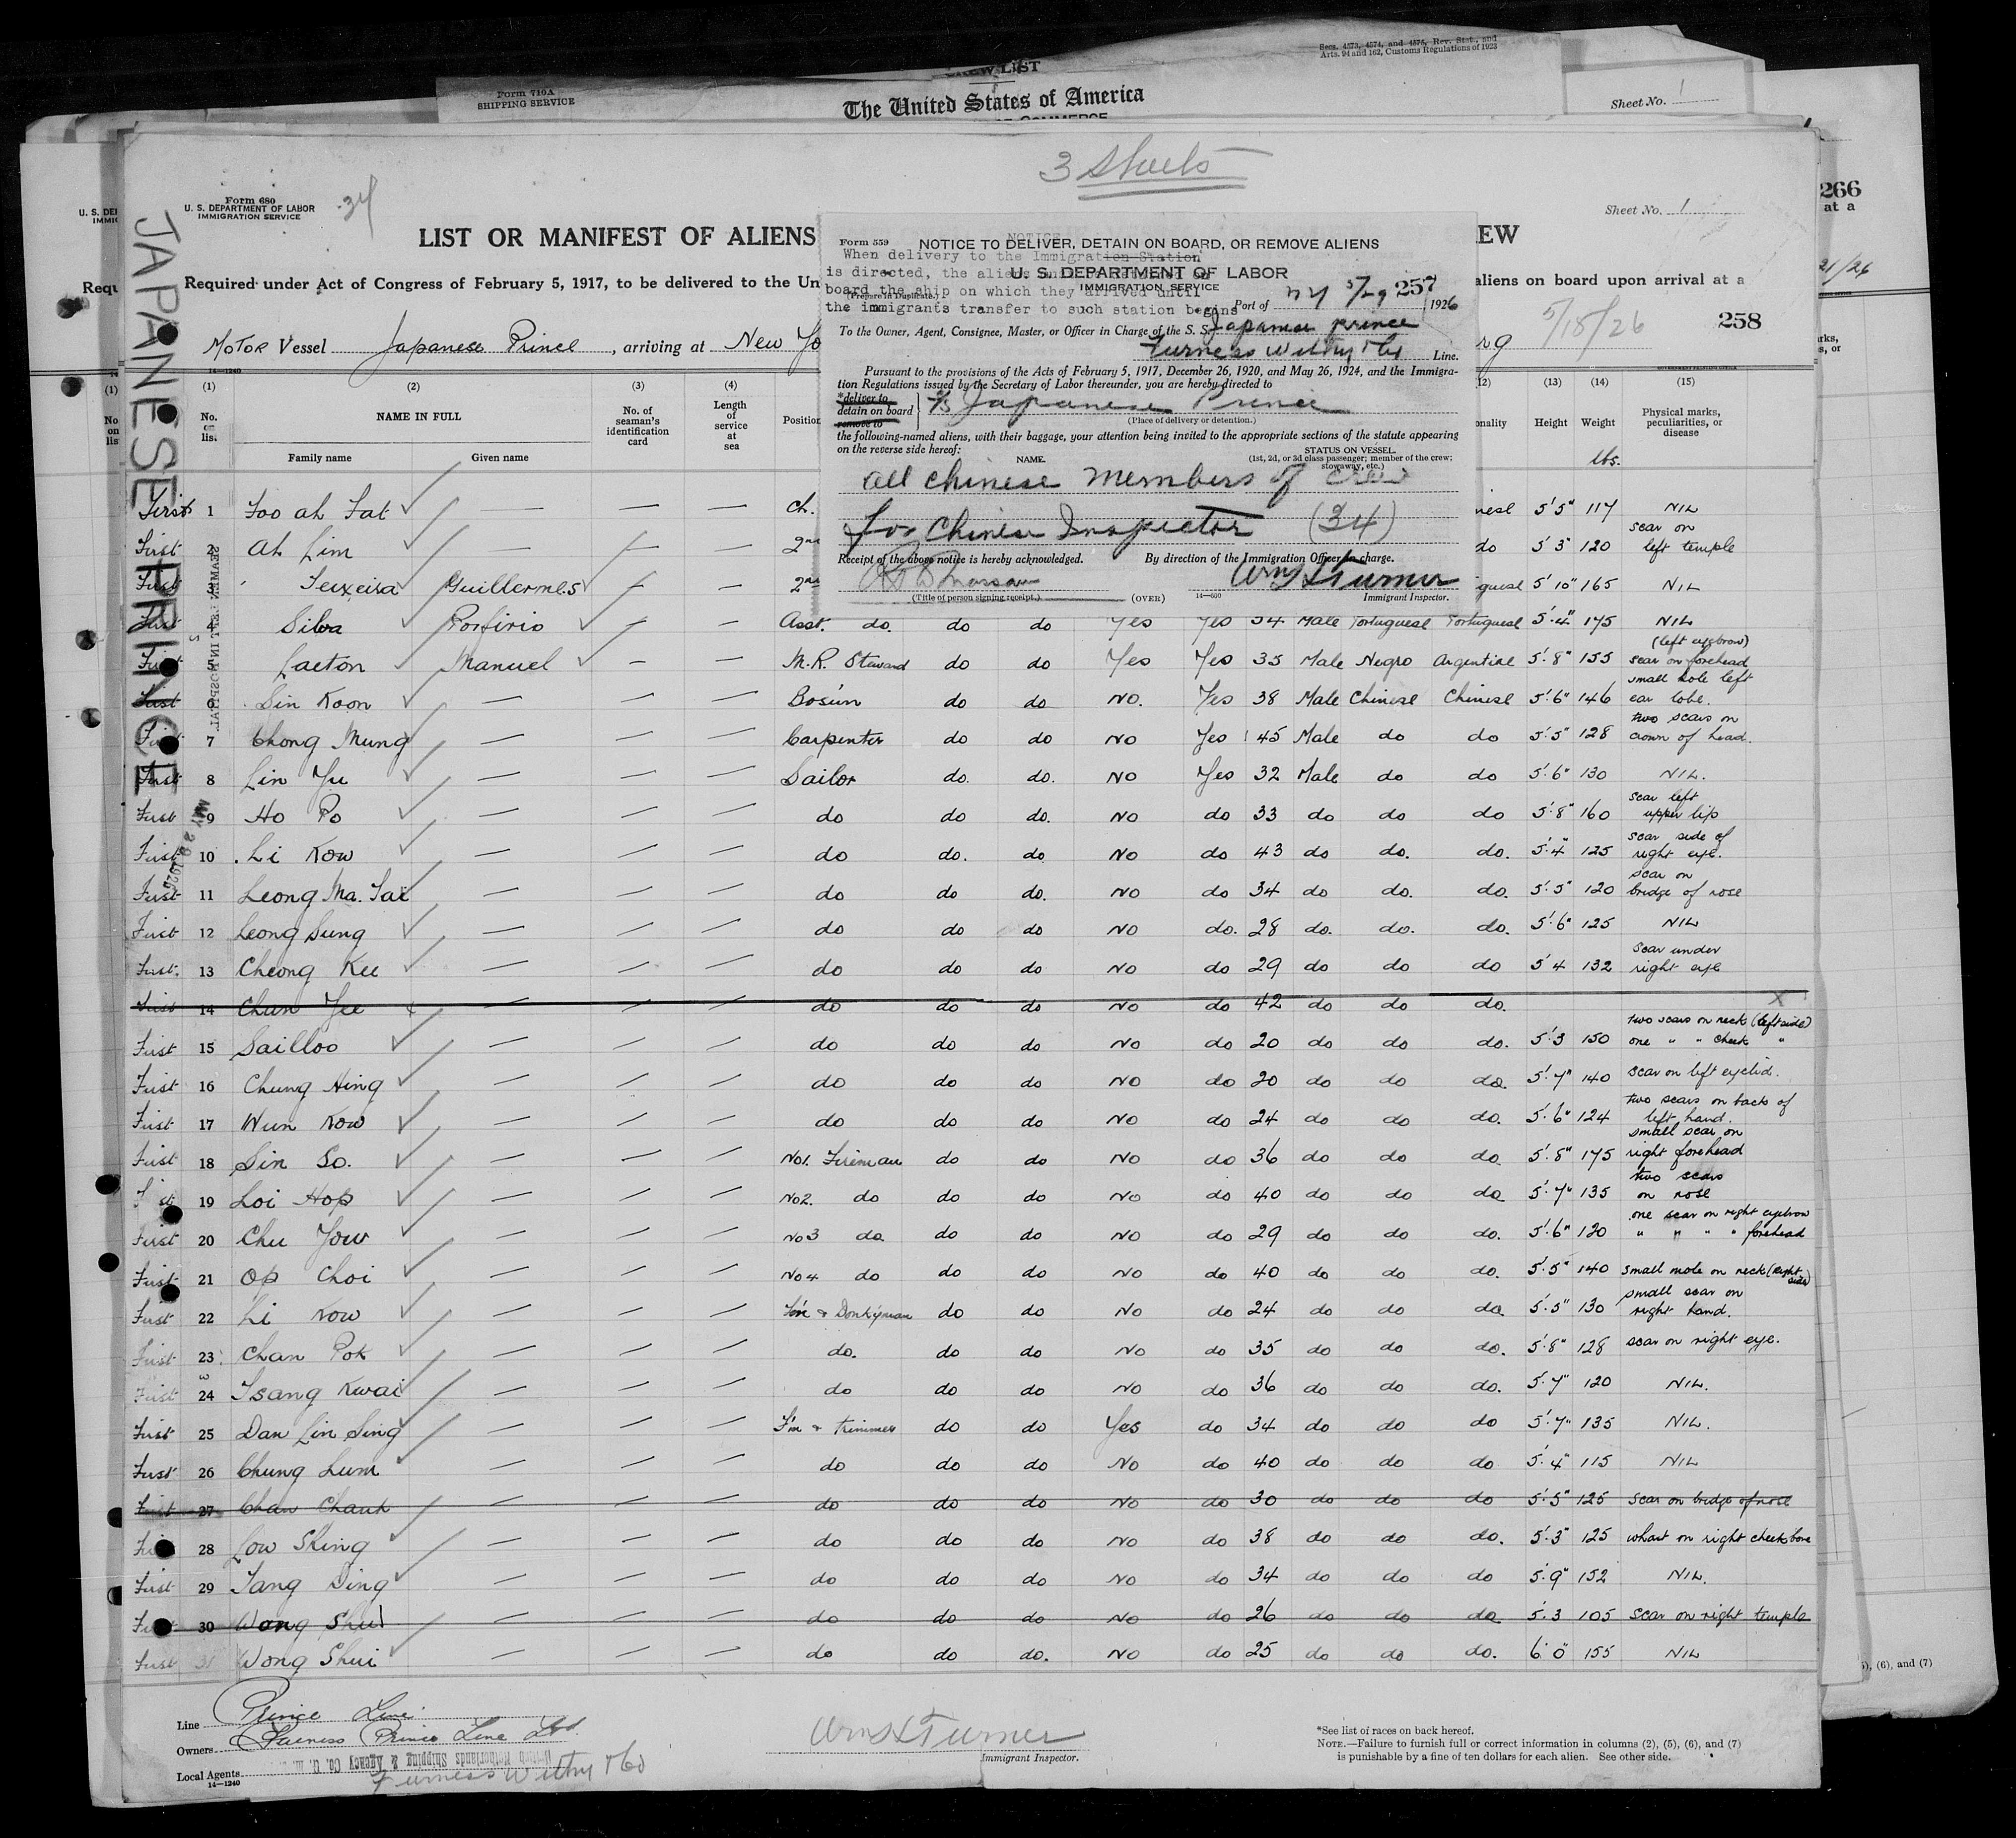 Secs. 4573, 4574, and 4575, Rev. Stat., and
Arts. 94 and 162, Customs Regulations of 1923
CREW LIST
Form 710A
SHIPPING SERVICE
The United States of America
Sheet No. 1
3 Sheets
266
at a
21/26
Form 680
U. S. DEPARTMENT OF LABOR
IMMIGRATION SERVICE
34
Sheet No. 1
JAPANESE PRINCE
LIST OR MANIFEST OF ALIENS
EW
Required under Act of Congress of February 5, 1917, to be delivered to the Un
aliens on board upon arrival at a
MOTOR Vessel Japanese Prince, arriving at New Yo
5/18/26
258
Form 559
NOTICE
NOTICE TO DELIVER, DETAIN ON BOARD, OR REMOVE ALIENS
When delivery to the Immigration Station
is directed, the aliens
U. S. DEPARTMENT OF LABOR
IMMIGRATION SERVICE
board the ship on which they arrived until
(Prepare in Duplicate.)
the immigrants transfer to such station begins
Port of NY 5/29 257 1926
To the Owner, Agent, Consignee, Master, or Officer in Charge of the S. S. Japanese Prince
Furness Withy & Co Line.
Pursuant to the provisions of the Acts of February 5, 1917, December 26, 1920, and May 26, 1924, and the Immigra-
tion Regulations issued by the Secretary of Labor thereunder, you are hereby directed to
*deliver to
detain on board
remove to
S/S Japanese Prince
(Place of delivery or detention.)
the following-named aliens, with their baggage, your attention being invited to the appropriate sections of the statute appearing
on the reverse side hereof:
NAME.
STATUS ON VESSEL.
(1st, 2d, or 3d class passenger; member of the crew;
stowaway, etc.)
all Chinese members of crew
for Chinese Inspector (34)
Receipt of the above notice is hereby acknowledged. By direction of the Immigration Officer in charge.
Wm H Turner
(Title of person signing receipt.) (OVER) 14—680 Immigrant Inspector.
14—1240
(1) (2) (3) (4) (13) (14) (15)
No. on list NAME IN FULL No. of seaman's identification card Length of service at sea Position onality Height Weight Physical marks, peculiarities, or disease
Family name Given name lbs.
First 1 Foo ah Fat — — — Ch. nese 5'5" 117 NIL
First 2 Ah Lim — — — 2nd do 5'3" 120 scar on left temple
First 3 Teixeira Guillermes — — 2nd guese 5'10" 165 NIL
First 4 Silva Porfirio — — Asst. do. do do Yes Yes 34 Male Portuguese Portuguese 5'4" 175 NIL
First 5 Laeton Manuel — — M.R. Steward do do Yes Yes 35 Male Negro Argentine 5'8" 155 (left eyebrow) scar on forehead
First 6 Sin Koon — — — Bosun do do No. Yes 38 Male Chinese Chinese 5'6" 146 small hole left ear lobe.
First 7 Chong Mung — — — Carpenter do do No Yes 45 Male do do 5'5" 128 two scars on crown of head.
First 8 Lin Yu — — — Sailor do. do. No Yes 32 Male do do 5'6" 130 NIL.
First 9 Ho Po — — — do do do. No do 33 do do do 5'8" 160 scar left upper lip
First 10 Li Kow — — — do do. do. No do 43 do do. do. 5'4" 125 scar side of right eye.
First 11 Leong Ma. Tai — — — do do do. No do 34 do do. do. 5'5" 120 scar on bridge of nose
First 12 Leong Sung — — — do do do No do. 28 do. do. do. 5'6" 125 NIL
First. 13 Cheong Kee — — — do do do No do 29 do do do 5'4 132 scar under right eye
First 14 Chan Yee x — — — do do do No do 42 do do do. x
First 15 Sailloo — — — do do do No do 20 do do do. 5'3 150 two scars on neck (left side) one " " cheek "
First 16 Chung Hing — — — do do do No do 20 do do do. 5'7" 140 scar on left eyelid.
First 17 Wun Kow — — — do do do No do 24 do do do. 5'6" 124 two scars on back of left hand.
First 18 Sin So. — — — No1. Fireman do do No do 36 do do do. 5'8" 175 small scar on right forehead
First 19 Loi Hop — — — No2. do do do No do 40 do do do. 5'7" 135 two scars on nose
First 20 Chu Yow — — — No3 do do do No do 29 do do do. 5'6" 120 one scar on right eyebrow " " " " forehead
First 21 Op Choi — — — No4 do do do No do 40 do do do. 5'5" 140 small mole on neck (right side)
First 22 Li Kow — — — F'm & Donkeyman do do No do 24 do do do 5'5" 130 small scar on right hand.
First 23 Chan Pok — — — do. do do No do 35 do do do. 5'8" 128 scar on right eye.
First 24 Tsang Kwai — — — do do do No do 36 do do do. 5'7" 120 NIL.
First 25 Dan Lin Sing — — — F'm & trimmer do do Yes do 34 do do do 5'7" 135 NIL.
First 26 Chung Lum — — — do do do No do 40 do do do 5'4" 115 NIL
First 27 Chan Chauk — — — do do do No do 30 do do do 5'5" 125 scar on bridge of nose
First 28 Low Shing — — — do do do No do 38 do do do. 5'3" 125 whart on right cheek bone
First 29 Tang Ding — — — do do do No do 34 do do do 5'9" 152 NIL.
First 30 Wong Shui — — — do do do No do 26 do do do 5'3 105 scar on right temple
First 31 Wong Shui — — — do do do. No do 25 do do do. 6'0" 155 NIL
Line Prince Line
Owners Furness Prince Line Ltd.
Local Agents Furness Withy & Co
14—1240
Wm H Turner
Immigrant Inspector.
*See list of races on back hereof.
NOTE.—Failure to furnish full or correct information in columns (2), (5), (6), and (7)
is punishable by a fine of ten dollars for each alien. See other side.
), (6), and (7)